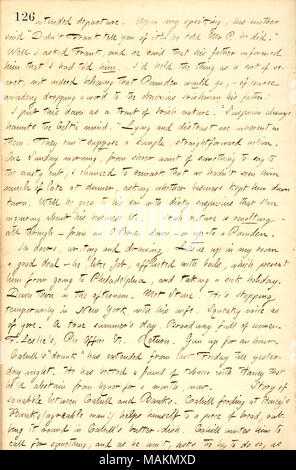 126
intended departure. Upon my speaking, his mother
said "Didn't Frank tell you of it? he told Mr P. he did."
Well I asked Frank, and he said that his father informed
him that I had told him. I'd held the thing as a sort of se-
cret, not indeed believing that Pounden would go, of course
avoiding dropping a word to the obnoxious Irishman his father.
I put this down as a trait of Irish nature. Suspicion always
haunts the Celtic mind. Lying and distrust are inherent in
them. They can't suppose a simple, straightforward action.
One Sunday morning, from sheer want of something to say to
the nasty cult, I chanced to remark that we hadn't seen him
much of late at dinner, asking whether business kept him down
town. Well he goes to his son with dirty suspicions that I'm
inquiring about his business &c. Irish nature is revolting
all through - from an O'Brien down - or up - to a Pounden.
In doors, writing and drawing. Leslie up in my room
a good deal - he, like Job, afflicted with boils, which prevent
him from going to Philadelphia, and taking a sick holiday.
Down town in the afternoon. Met Stone. He's stopping
temporarily in New York, with his wife. Squeaky voice as
of yore. A true summer's day, Broadway full of women.
F. Leslie's, Pic Office &c. Return. Gun up for an hour.
Cahill's "drunk" has extended from last Friday till yester-
day night. He has betted a pound of tobacco with Haney that
he'd abstain from liquor for a month, now. Story of
squabble between Cahill and Banks. Cahill feeding at Haney's
Banks (agreable man!) helps himself to a piece of bread, rub-
bing it round in Cahill's butter-dish. Cahill invites him to
call for something, and as he won't, asks the boy to do so, as
alamy
Image ID: MAKMXD
www.alamy.com